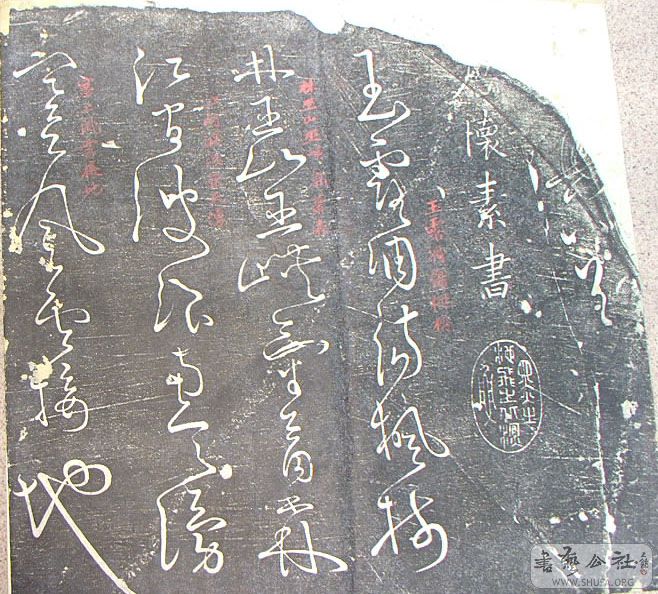 懷素書
玉露凋傷楓樹
玉露凋傷楓樹
林巫山巫峽氣蕭森
林巫山巫峽氣蕭森
江間波浪兼天湧
江間波浪兼天湧
塞上風雲接地
塞上風雲接地
書藝公社
WWW.SHUFA.ORG